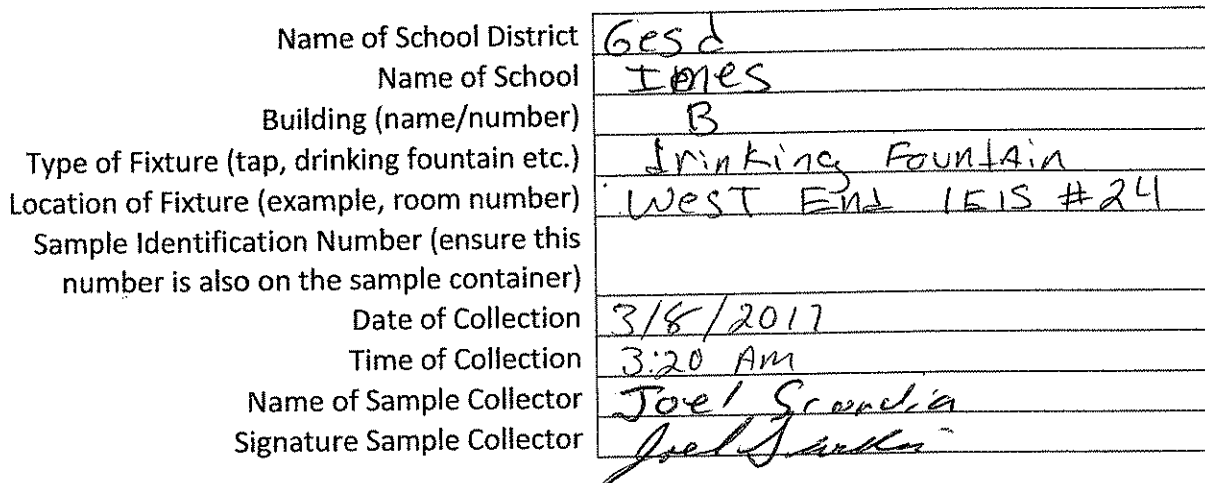 Name of School District Gesd
Name of School Imes
Building (name/number) B
Type of Fixture (tap, drinking fountain etc.) drinking Fountain
Location of Fixture (example, room number) West End 1E1S #24
Sample Identification Number (ensure this
number is also on the sample container)
Date of Collection 3/8/2017
Time of Collection 3:20 AM
Name of Sample Collector Joel
Signature Sample Collector Joel